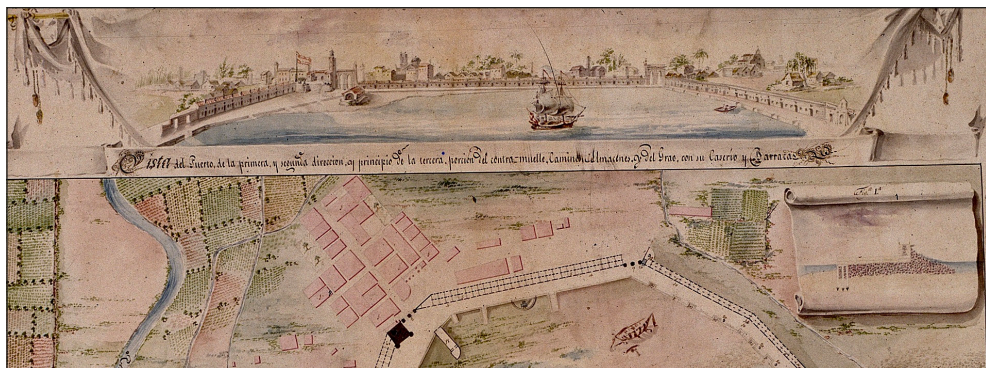 Vista del Puerto, de la primera, y segunda direccion, y principio de la tercera, porcion del contra-muelle, Camino, Almacenes, y del Grao, con su Caserio y Barracas
Fig.ª 1.ª